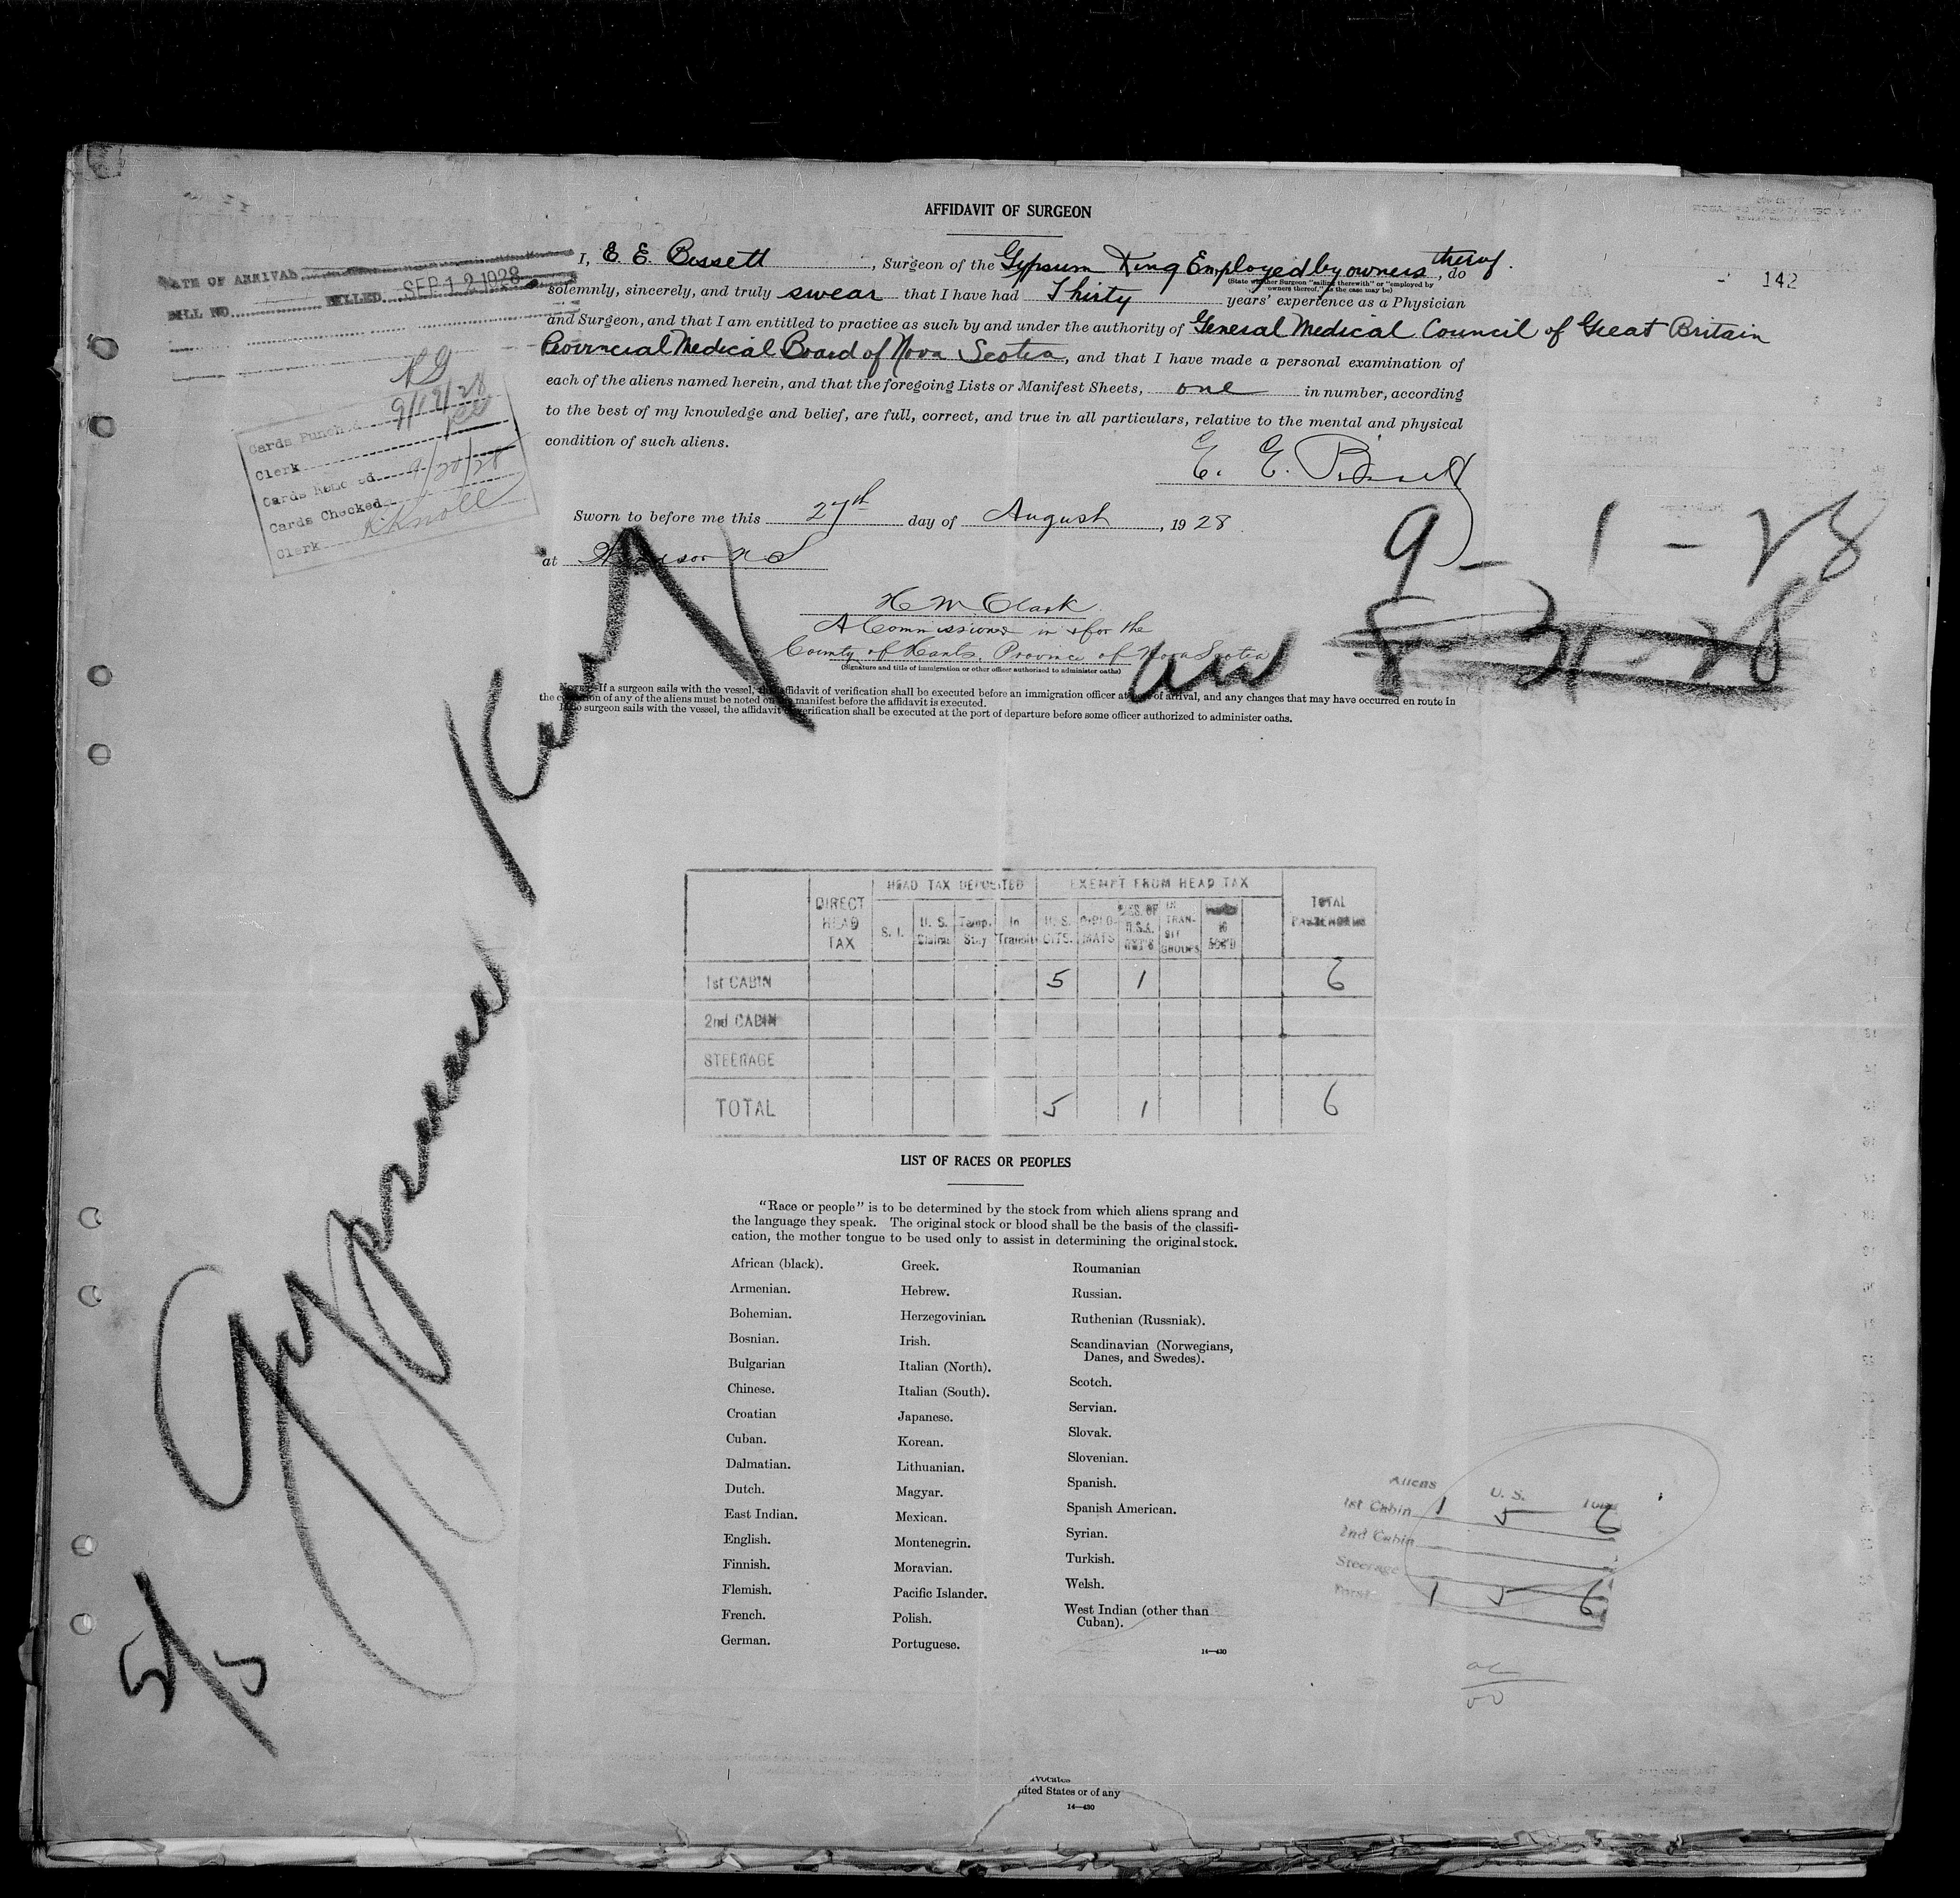 AFFIDAVIT OF SURGEON
I, E. E. Bissett, Surgeon of the Gypsum King Employed by owners therof, do
(State whether Surgeon "sailing therewith" or "employed by
owners thereof," as the case may be)
solemnly, sincerely, and truly swear that I have had Thirty years' experience as a Physician
and Surgeon, and that I am entitled to practice as such by and under the authority of General Medical Council of Great Britain
Provincial Medical Board of Nova Scotia, and that I have made a personal examination of
each of the aliens named herein, and that the foregoing Lists or Manifest Sheets, one in number, according
to the best of my knowledge and belief, are full, correct, and true in all particulars, relative to the mental and physical
condition of such aliens.
E. E. Bissett
Sworn to before me this 27th day of August, 1928
at Windsor N S
H M Clark
A Commissioner in & for the
County of Hants, Province of Nova Scotia
(Signature and title of immigration or other officer authorized to administer oaths)
NOTE.—If a surgeon sails with the vessel, the affidavit of verification shall be executed before an immigration officer at port of arrival, and any changes that may have occurred en route in
the condition of any of the aliens must be noted on the manifest before the affidavit is executed.
If no surgeon sails with the vessel, the affidavit of verification shall be executed at the port of departure before some officer authorized to administer oaths.
DATE OF ARRIVAL
BILL NO. BILLED SEP 12 1928
142
Cards Punched 9/19/28
Clerk
Cards Removed 9/20/28
Cards Checked
Clerk K. Knoll
9-1-28
8-31-28
Gypsum King
5/5
HEAD TAX DEPOSITED EXEMPT FROM HEAD TAX
DIRECT HEAD TAX S. I. U. S. Claims Temp. Stay In Transit U. S. CITS. DIPLOMATS RES. OF U.S.A. IN TRANSIT GROUPS TOTAL PASSENGERS
1st CABIN 5 1 6
2nd CABIN
STEERAGE
TOTAL 5 1 6
LIST OF RACES OR PEOPLES
"Race or people" is to be determined by the stock from which aliens sprang and
the language they speak. The original stock or blood shall be the basis of the classifi-
cation, the mother tongue to be used only to assist in determining the original stock.
African (black).
Armenian.
Bohemian.
Bosnian.
Bulgarian
Chinese.
Croatian
Cuban.
Dalmatian.
Dutch.
East Indian.
English.
Finnish.
Flemish.
French.
German.
Greek.
Hebrew.
Herzegovinian.
Irish.
Italian (North).
Italian (South).
Japanese.
Korean.
Lithuanian.
Magyar.
Mexican.
Montenegrin.
Moravian.
Pacific Islander.
Polish.
Portuguese.
Roumanian
Russian.
Ruthenian (Russniak).
Scandinavian (Norwegians,
Danes, and Swedes).
Scotch.
Servian.
Slovak.
Slovenian.
Spanish.
Spanish American.
Syrian.
Turkish.
Welsh.
West Indian (other than
Cuban).
14—430
Aliens U. S. Total
1st Cabin 1 5 6
2nd Cabin
Steerage
Total 1 5 6
nited States or of any
14—430